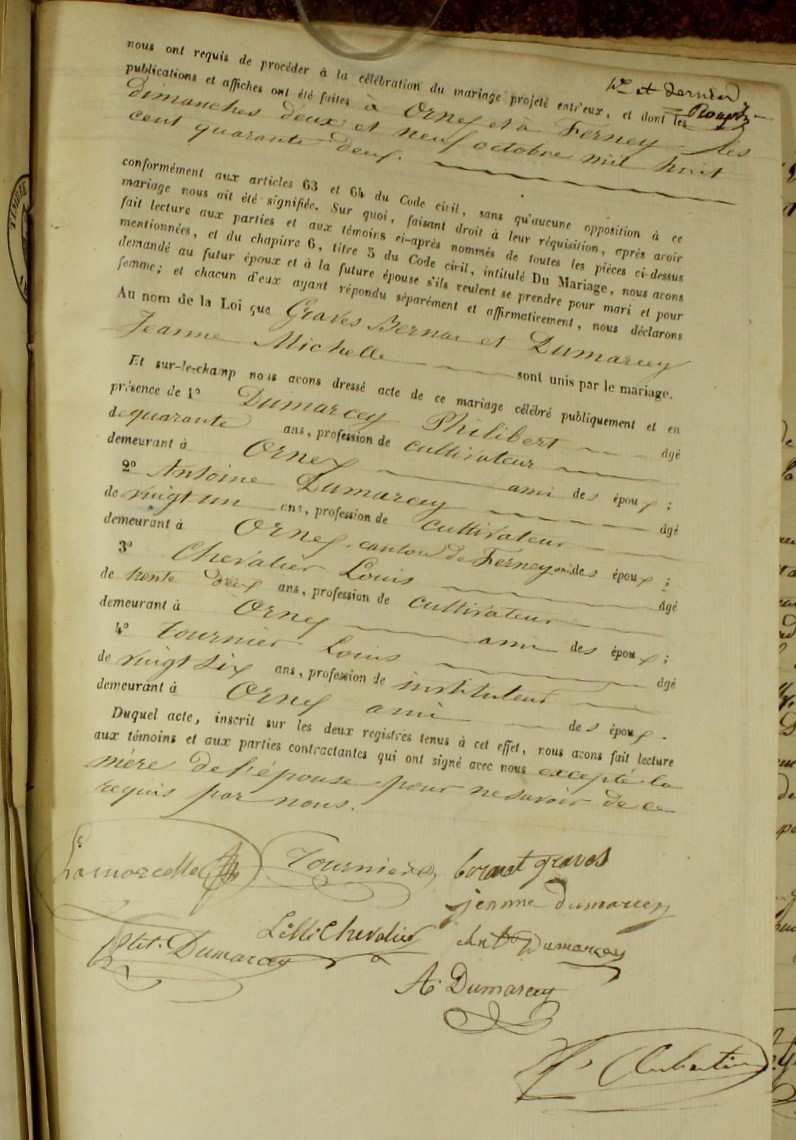 et dernier
nous ont requis de procéder à la célébration du mariage projeté entr'eux, et dont les
publications et affiches ont été faites à Ornex et à Ferney les
dimanches deux et neuf octobre mil huit
cent quarante deux.
conformément aux articles 63 et 64 du Code civil, sans qu'aucune opposition à ce
mariage nous ait été signifiée. Sur quoi, faisant droit à leur réquisition, après avoir
fait lecture aux parties et aux témoins ci-après nommés de toutes les pièces ci-dessus
mentionnées, et du chapitre 6, titre 5 du Code civil, intitulé Du Mariage, nous avons
demandé au futur époux et à la future épouse s'ils veulent se prendre pour mari et pour
femme; et chacun d'eux ayant répondu séparément et affirmativement, nous déclarons
Au nom de la Loi que Graves Bernar et Dumarcey
Jeanne Michelle sont unis par le mariage.
Et sur-le-champ nous avons dressé acte de ce mariage célébré publiquement et en
présence de 1° Dumarcey Philibert âgé
de quarante ans, profession de cultivateur
demeurant à Ornex ami des époux;
2° Antoine Dumarcey âgé
de vingt un ans, profession de cultivateur
demeurant à Ornex, canton de Ferney ami des époux;
3° Chevalier Louis âgé
de trente deux ans, profession de cultivateur
demeurant à Ornex ami des époux;
4° Tournier Louis âgé
de vingt six ans, profession de instituteur
demeurant à Ornex ami des époux.
Duquel acte, inscrit sur les deux registres tenus à cet effet, nous avons fait lecture
aux témoins et aux parties contractantes qui ont signé avec nous excepté la
mère de l'épouse pour ne savoir de ce
requis par nous.
Tournier graves
jeanne dumarcey
Chevalier Dumarcey
Dumarcey
A. Dumarcey